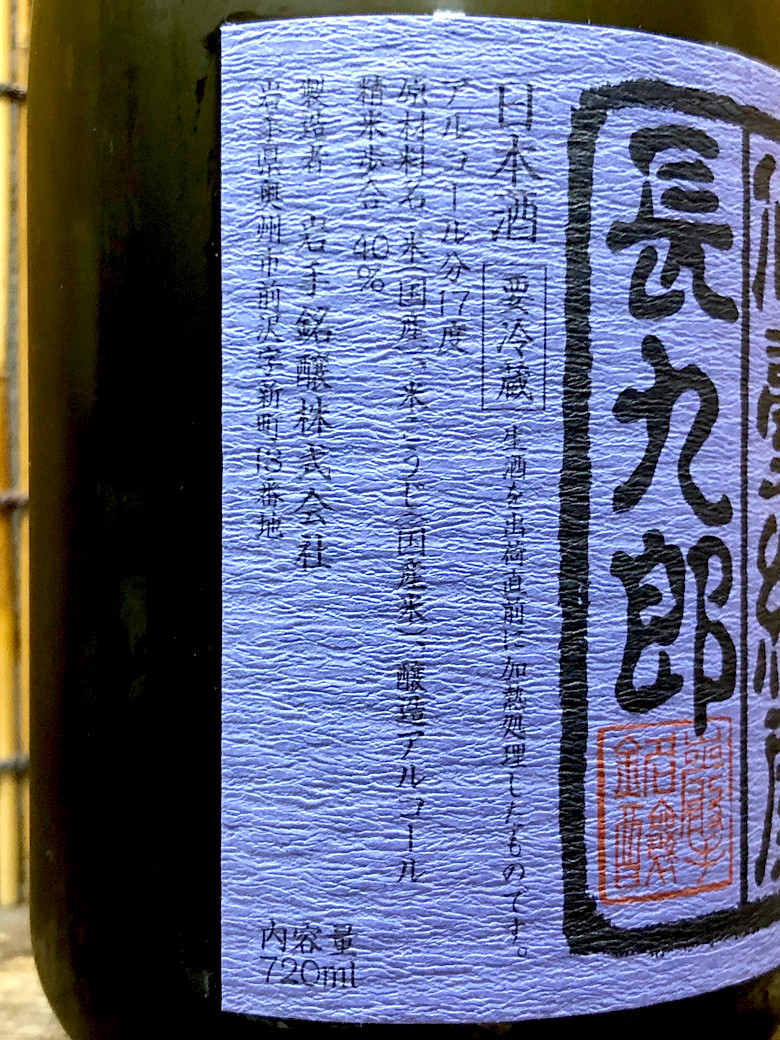 長九郎
日本酒 要冷蔵 生酒を出荷直前に加熱処理したものです。
アルコール分17度
原材料名 米(国産)、米こうじ(国産米)、醸造アルコール
精米歩合 40%
製造者 岩手銘醸株式会社
岩手県奥州市前沢字新町13番地
内容量
720ml